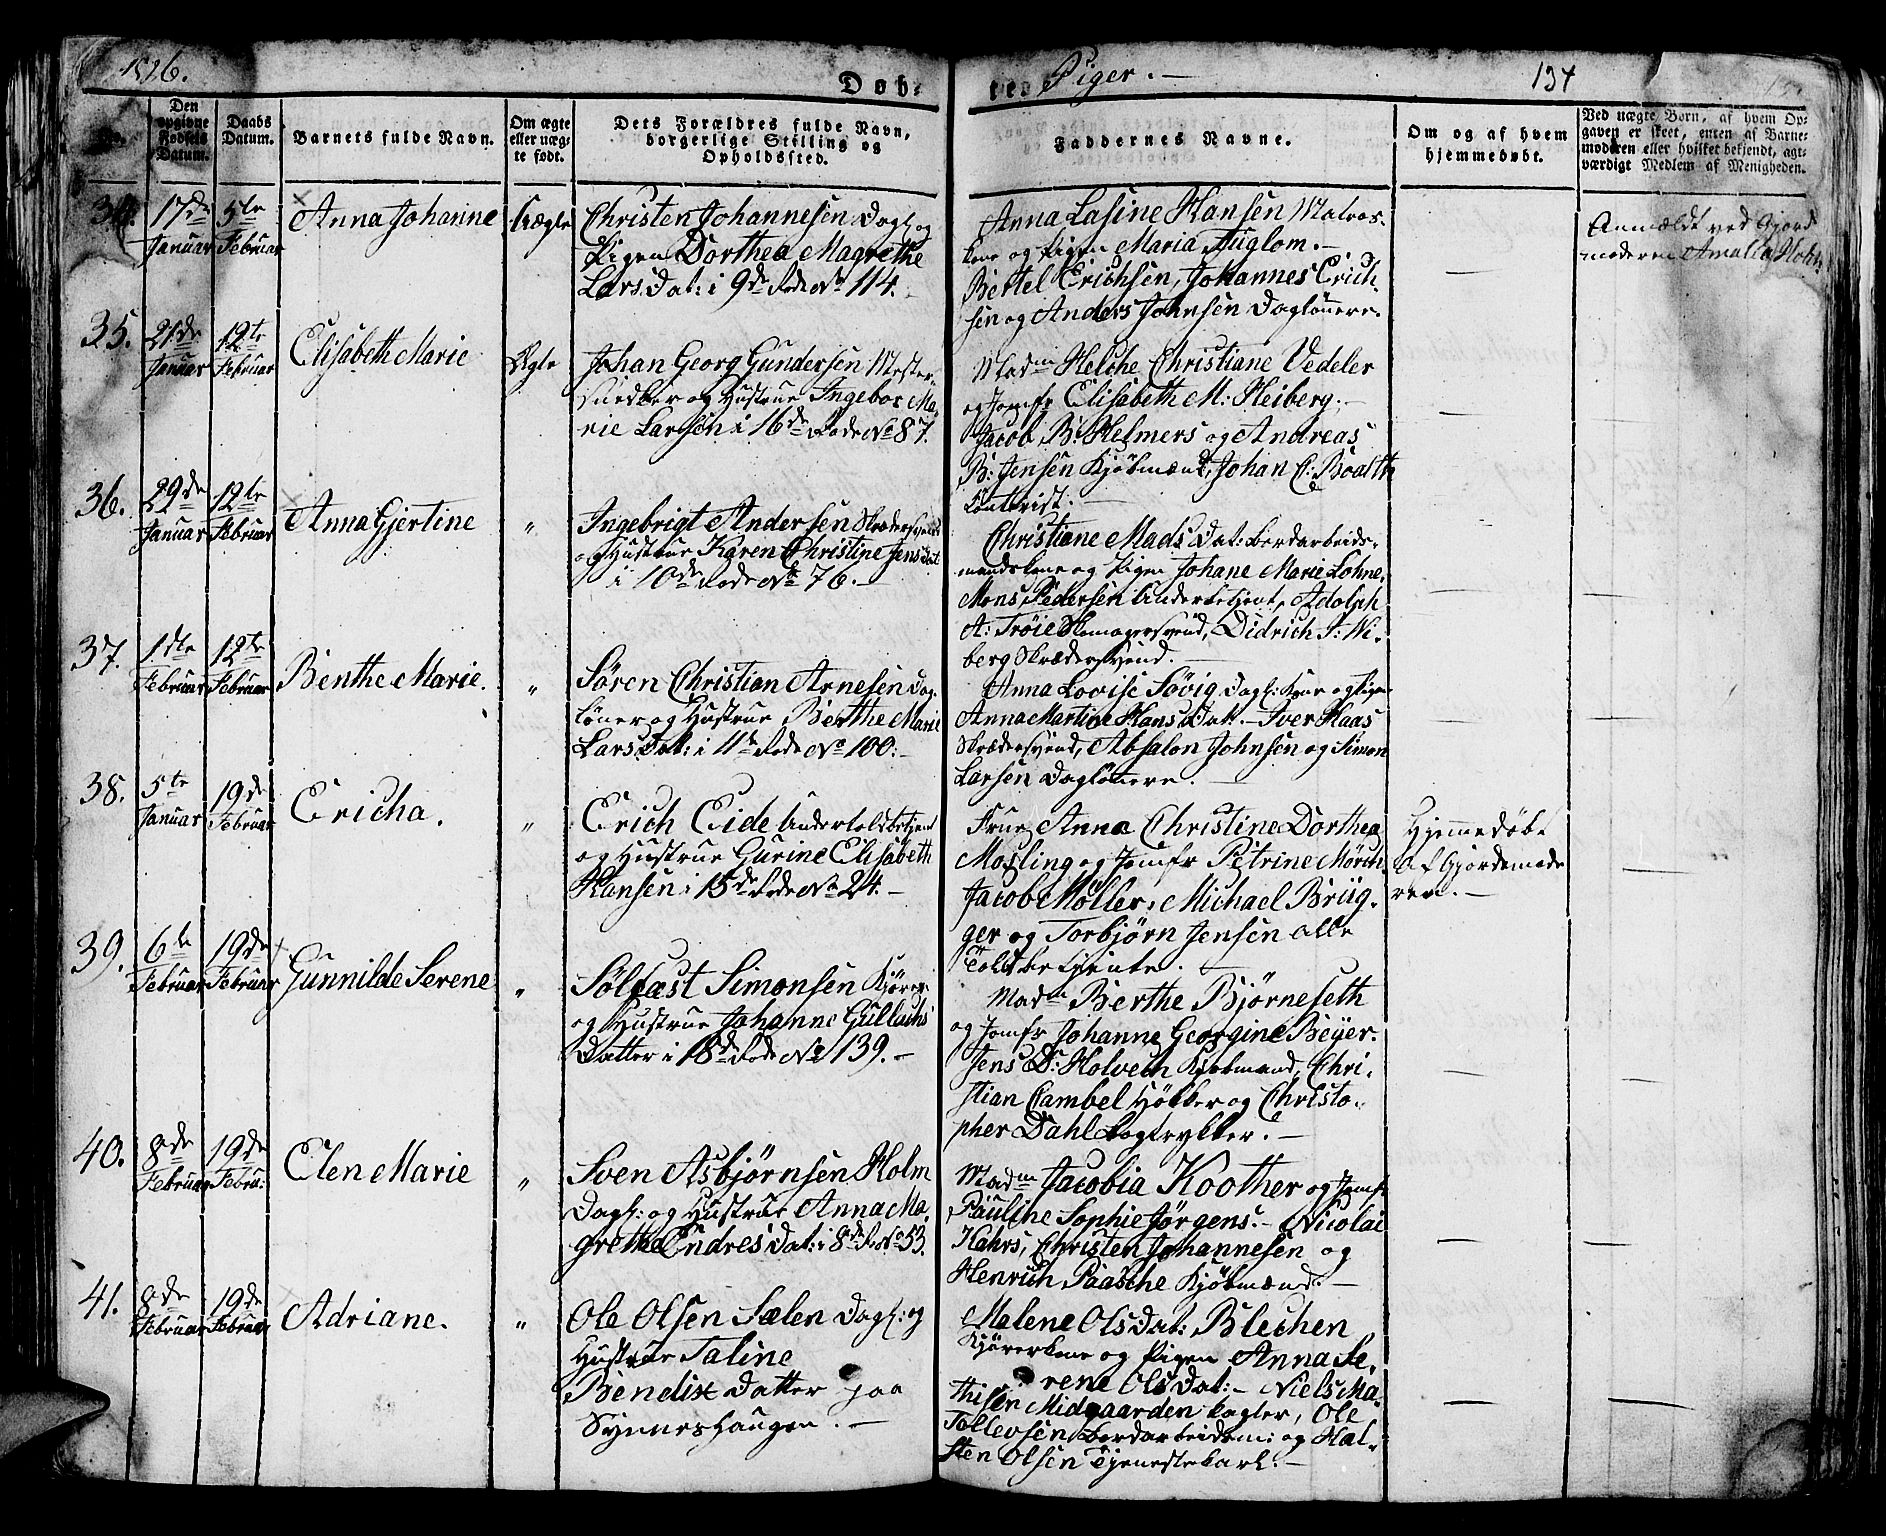 1826.
Døb-
te
Piger. —
134
No.
Den opgivne Fødsels Datum.
Daabs Datum.
Barnets fulde Navn.
Om ægte eller uægte født.
Dets Forældres fulde Navn, borgerlige Stilling og Opholdssted.
Faddernes Navne.
Om og af hvem hjemmedøbt.
Ved uægte Børn, af hvem Opgaven er skeet, enten af Barnemoderen eller hvilket bekjendt, agtværdigt Medlem af Menigheden.
34. 17de Januar
5te Februar
Anna Johanne
Uægte
Christen Johannesen Dagl: og
Pigen Dorthea Magrethe
Lars Dat: i 9de Rode No 114. -
Anna Lasine Hansen Matros-
kone og Pigen Maria Fuglom. -
Bertel Erichsen, Johannes Erich-
sen og Anders Johnsen Daglønnere.
—
Anmældt ved Gjord
moderen Amalia
35. 21de Januar
12te Februar
Elisabeth Marie
Ægte
Johan Georg Gundersen Mester-
snedker og Hustrue Ingebor Ma-
rie Larsen i 16de Rode No 87.
Madm Helche Christiane Vedeler
og Jomfr Elisabeth M: Heiberg. -
Jacob B: Helmers og Andreas
B: Jensen Kjøbmænd, Johan C: Boalth
Contorist. -
—
36. 29de Januar
12te Februar
Anna Gjertine
"
Ingebrigt Andersen Skrædersvend
og Hustrue Karen Christine Jens Dat
i 10de Rode No 76. -
Christiane Mads Dat: bordarbeids-
mandskone og Pigen Johane Marie Lohne.
Mons Pedersen Underbetjent, Adolph
A: Trøie Skomagersvend, Didrich J: Wi-
berg Skrædersvend.
—
37. 1ste Februar
12te Februar
Benthe Marie.
"
Søren Christian Arnesen Dag-
lønner og Hustrue Berthe Marie
Lars Dat: i 11te Rode No 100: -
Anna Lovise Søvig Dagl: Kone og Pigen
Anna Martine Hans Dat. - Iver Haas
Skrædersvend, Absalon Johnsen og Simon
Larsen Daglønnere. -
—
38. 5te Januar
19de Februar
Ericha.
"
Erich Eide Undertoldbetjent
og Hustrue Gurine Elisabeth
Hansen i 15de Rode No 24. -
Frue Anna Christine Dorthea
Mosling og Jomfr Petrine Mørch
Jacob Møller, Michael Brüg-
ger og Torbjørn Jensen alle
Toldbetjente. -
Hjemmedøbt
af Gjordemode
ren. -
—
39. 6te Februar
19de Februar
Gunnilde Serene
"
Sølfæst Simonsen Kjører
og Hustrue Johanne Gullachs
Datter i 18de Rode No 139. -
Madm Berthe Bjørneseth
og Jomfr Johanne Georgine Beyer.
Jens D: Holvech Kjøbmand, Chri-
stian Cambel Høkker og Christo-
pher Dahl Bogtrykker. -
—
40. 8de Februar
19de Febru:
Elen Marie
"
Sven Asbjørnsen Holm
Dagl: og Hustrue Anna Ma-
grethe Endres Dat: i 8de R: No 53.
Madm Jacobia Koother og Jomfr
Pauline Sophie Jørgens. - Nicolai
Kahrs, Christen Johannesen og
Henrich Paasche Kjøbmænd. -
—
41. 8de Februar
19de Februar
Adriane.
"
Ole Olsen Sælen Dagl: og
Hustrue Taline
Bendix Datter paa
Synneshaugen. -
Malene Ols Dat: Blechen
Kjørerkone og Pigen Anna Se-
rene Ols Dat: - Niels Ma-
thisen Midgaarden Bagler, Ole
Tollevsen bordarbeidsm: og Hal-
sten Olsen Tjenestekarl. -
—